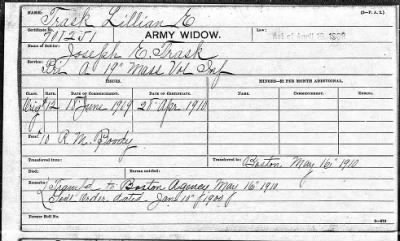 NAME: Trask Lillian E (3-P. A. 2.)
Certificate No. 701251 ARMY WIDOW. Law: Act of April 19, 1908
Name of Soldier: Joseph E. Trask
Service: Co. A 19" Mass Vol Inf
ISSUES. MINORS—$2 PER MONTH ADDITIONAL.
CLASS. RATE. DATE OF COMMENCEMENT. DATE OF CERTIFICATE. NAME. COMMENCEMENT. ENDING.
Orig 12 15 June 1909 25 Apr. 1910
R. M. Boody
Transferred from: Transferred to: Boston, May 16" 1910
Died: Bureau notified:
Remarks: Transf'd to Boston Agency May 16" 1910
dated Jan 10"
Former Roll No.